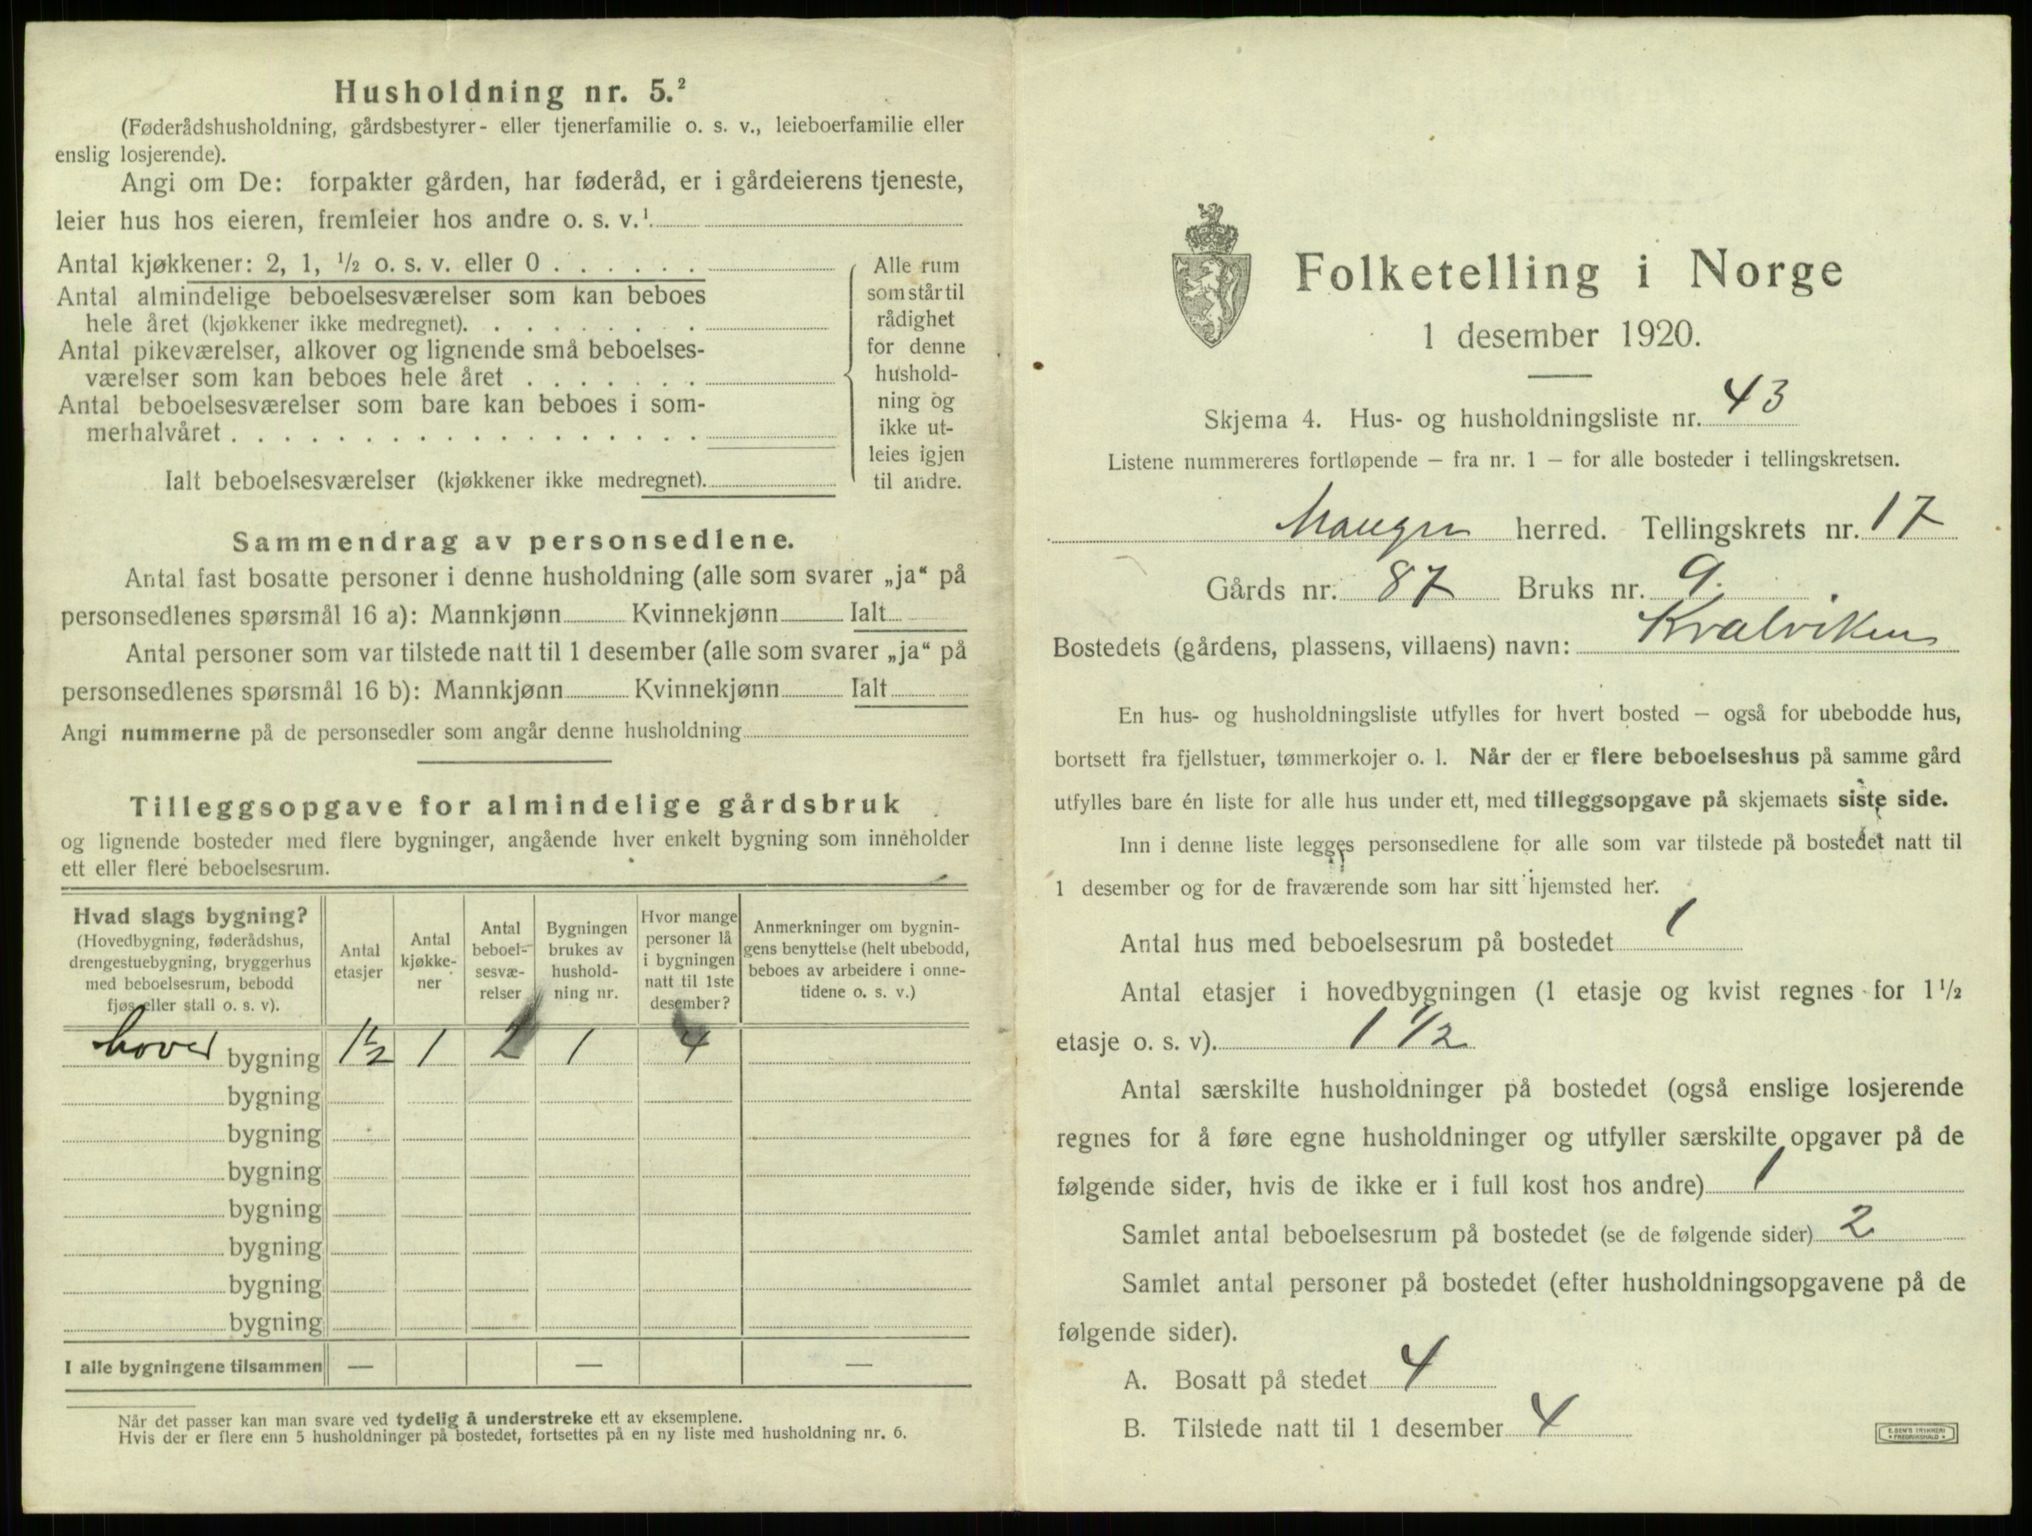 Husholdning nr. 5.²
(Føderådshusholdning, gårdsbestyrer- eller tjenerfamilie o. s. v., leieboerfamilie eller
enslig losjerende).
Angi om De: forpakter gården, har føderåd, er i gårdeierens tjeneste,
leier hus hos eieren, fremleier hos andre o. s. v.¹
Antal kjøkkener: 2, 1, ½ o. s. v. eller 0 . . . . . .
Antal almindelige beboelsesværelser som kan beboes
hele året (kjøkkener ikke medregnet). . . . . . . . .
Antal pikeværelser, alkover og lignende små beboelses-
værelser som kan beboes hele året . . . . . . .
Antal beboelsesværelser som bare kan beboes i som-
merhalvåret . . . . . . . . . . . . . . . . . .
Ialt beboelsesværelser (kjøkkener ikke medregnet).
Alle rum
som står til
rådighet
for denne
hushold-
ning og
ikke ut-
leies igjen
til andre.
Sammendrag av personsedlene.
Antal fast bosatte personer i denne husholdning (alle som svarer „ja“ på
personsedlenes spørsmål 16 a): Mannkjønn Kvinnekjønn Ialt
Antal personer som var tilstede natt til 1 desember (alle som svarer „ja“ på
personsedlenes spørsmål 16 b): Mannkjønn Kvinnekjønn Ialt
Angi nummerne på de personsedler som angår denne husholdning
Tilleggsopgave for almindelige gårdsbruk
og lignende bosteder med flere bygninger, angående hver enkelt bygning som inneholder
ett eller flere beboelsesrum.
Hvad slags bygning?
(Hovedbygning, føderådshus,
drengestuebygning, bryggerhus
med beboelsesrum, bebodd
fjøs eller stall o. s. v).
Antal
etasjer
Antal
kjøkke-
ner
Antal
beboel-
sesvæ-
relser
Bygningen
brukes av
hushold-
ning nr.
Hvor mange
personer lå
i bygningen
natt til 1ste
desember?
Anmerkninger om bygnin-
gens benyttelse (helt ubebodd,
beboes av arbeidere i onne-
tidene o. s. v.)
hoved bygning 1½ 1 2 1 4
bygning
bygning
bygning
bygning
bygning
bygning
bygning
I alle bygningene tilsammen — — —
Når det passer kan man svare ved tydelig å understreke ett av eksemplene.
Hvis der er flere enn 5 husholdninger på bostedet, fortsettes på en ny liste med husholdning nr. 6.
Folketelling i Norge
1 desember 1920.
Skjema 4. Hus- og husholdningsliste nr. 43
Listene nummereres fortløpende – fra nr. 1 – for alle bosteder i tellingskretsen.
Manger herred. Tellingskrets nr. 17
Gårds nr. 87 Bruks nr. 9.
Bostedets (gårdens, plassens, villaens) navn: Kvalviken
En hus- og husholdningsliste utfylles for hvert bosted – også for ubebodde hus,
bortsett fra fjellstuer, tømmerkojer o. l. Når der er flere beboelseshus på samme gård
utfylles bare én liste for alle hus under ett, med tilleggsopgave på skjemaets siste side.
Inn i denne liste legges personsedlene for alle som var tilstede på bostedet natt til
1 desember og for de fraværende som har sitt hjemsted her.
Antal hus med beboelsesrum på bostedet 1
Antal etasjer i hovedbygningen (1 etasje og kvist regnes for 1½
etasje o. s. v). 1 1/2
Antal særskilte husholdninger på bostedet (også enslige losjerende
regnes for å føre egne husholdninger og utfyller særskilte opgaver på de
følgende sider, hvis de ikke er i full kost hos andre) 1
Samlet antal beboelsesrum på bostedet (se de følgende sider) 2
Samlet antal personer på bostedet (efter husholdningsopgavene på de
følgende sider).
A. Bosatt på stedet 4
B. Tilstede natt til 1 desember 4
E. SEM'S TRYKKERI
FREDRIKSHALD